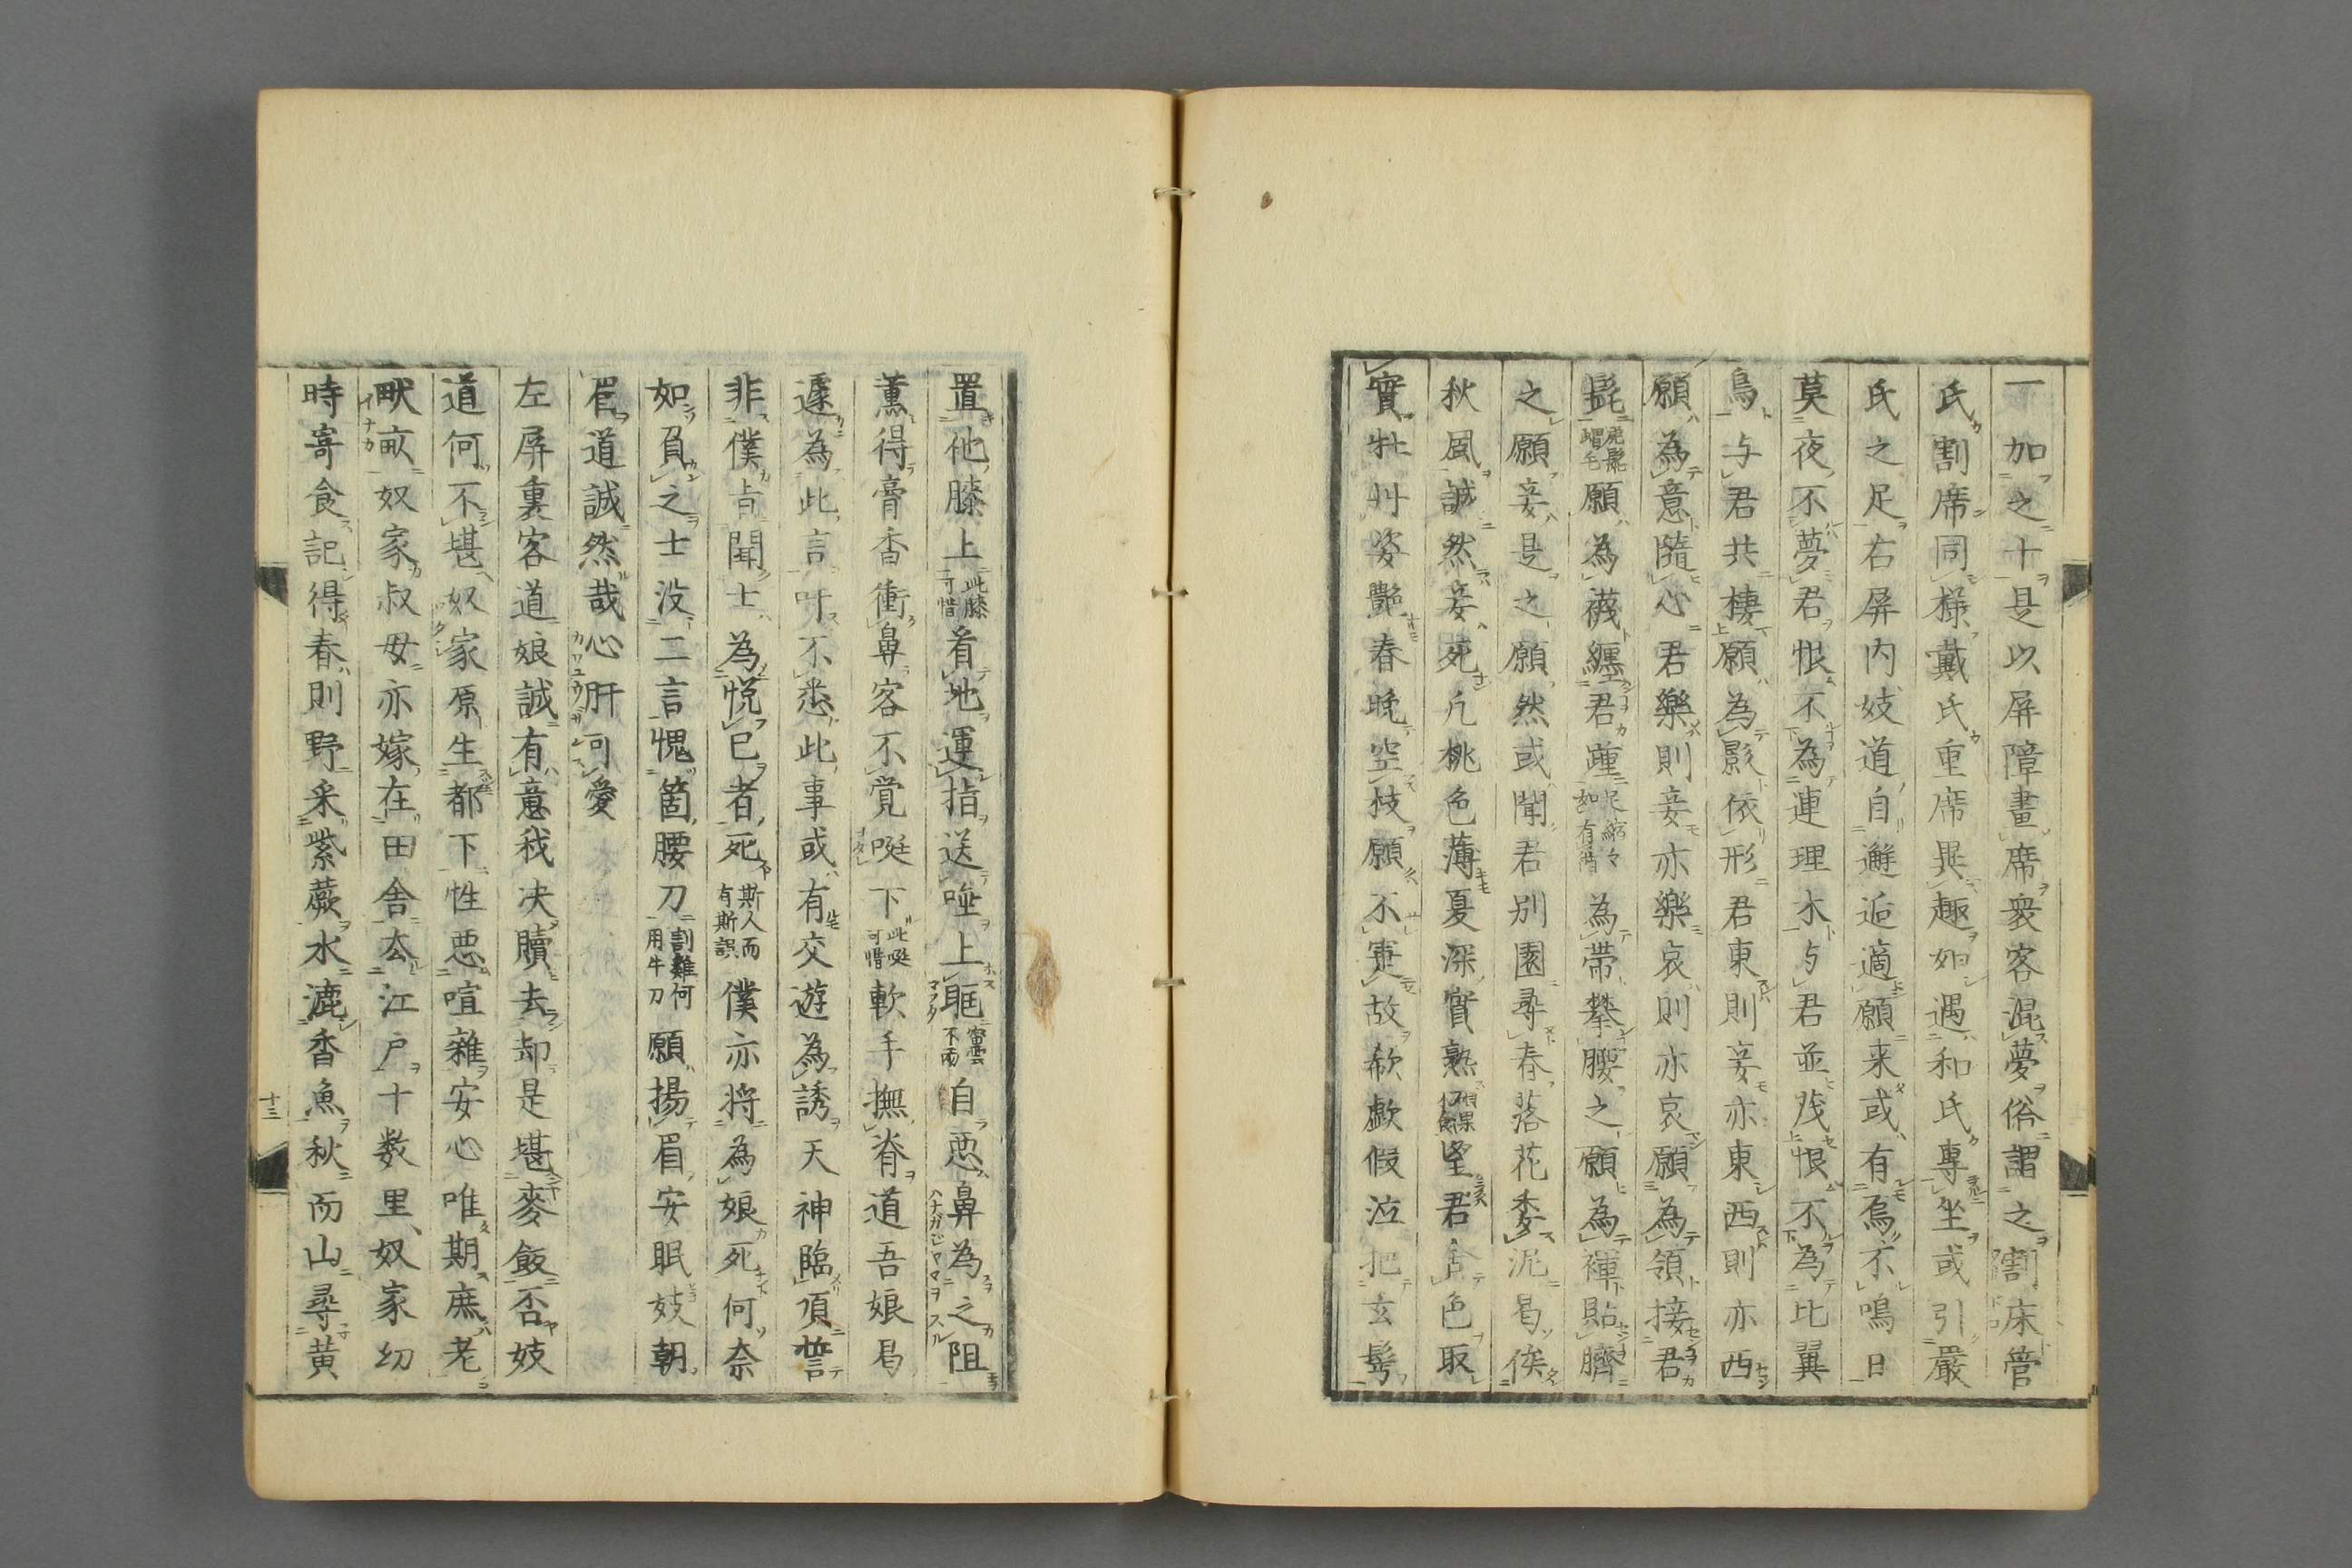 一加之十是以屏障畫席衆客混夢俗謂之割床管
氏割席同様戴氏重席異趣如遇和氏專坐或引嚴
氏之足右屏内妓道自邂逅適願来或有烏不鳴日
莫夜不夢君恨不為連理木与君並茂恨不為比翼
鳥与君共棲願為影依形君東則妾亦東西則亦西
願為意隨心君樂則妾亦樂哀則亦哀願為領接君
髭願為襪纏君踵為帶攀腰之願為褌貼臍
之願妾是之願然或聞君別園尋春落花委泥曷俟
秋風誠然妾死凢桃色薄夏深實熟望君舍色取
實牡丱姿艷春晩空枝願不寔故欷歔假泣把玄髩
置他膝上此膝可惜看地運指送唾上眶密雲不雨自惡鼻為之阻
薫得膏香衝鼻客不覚唌下此唌可惜軟手撫脊道吾娘曷
遽為此言吁不悉此事或有交遊為誘天神臨頂誓
非僕㫖聞士為悦已者死斯人而有斯誤僕亦将為娘死何奈
如負之士没二言愧箇腰刀割雞何用牛刀願揚眉安眠妓朝
眉道誠然哉心肝可愛
左屏裏客道娘誠有意我决贖去却是堪麥飯否妓
道何不堪奴家原生都下性惡喧雜安心唯期庶老
畎畝奴家叔母亦嫁在田舍厺江戸十数里奴家幼
時寄食記得春則野采紫蕨水漉香魚秋而山尋黄
十三